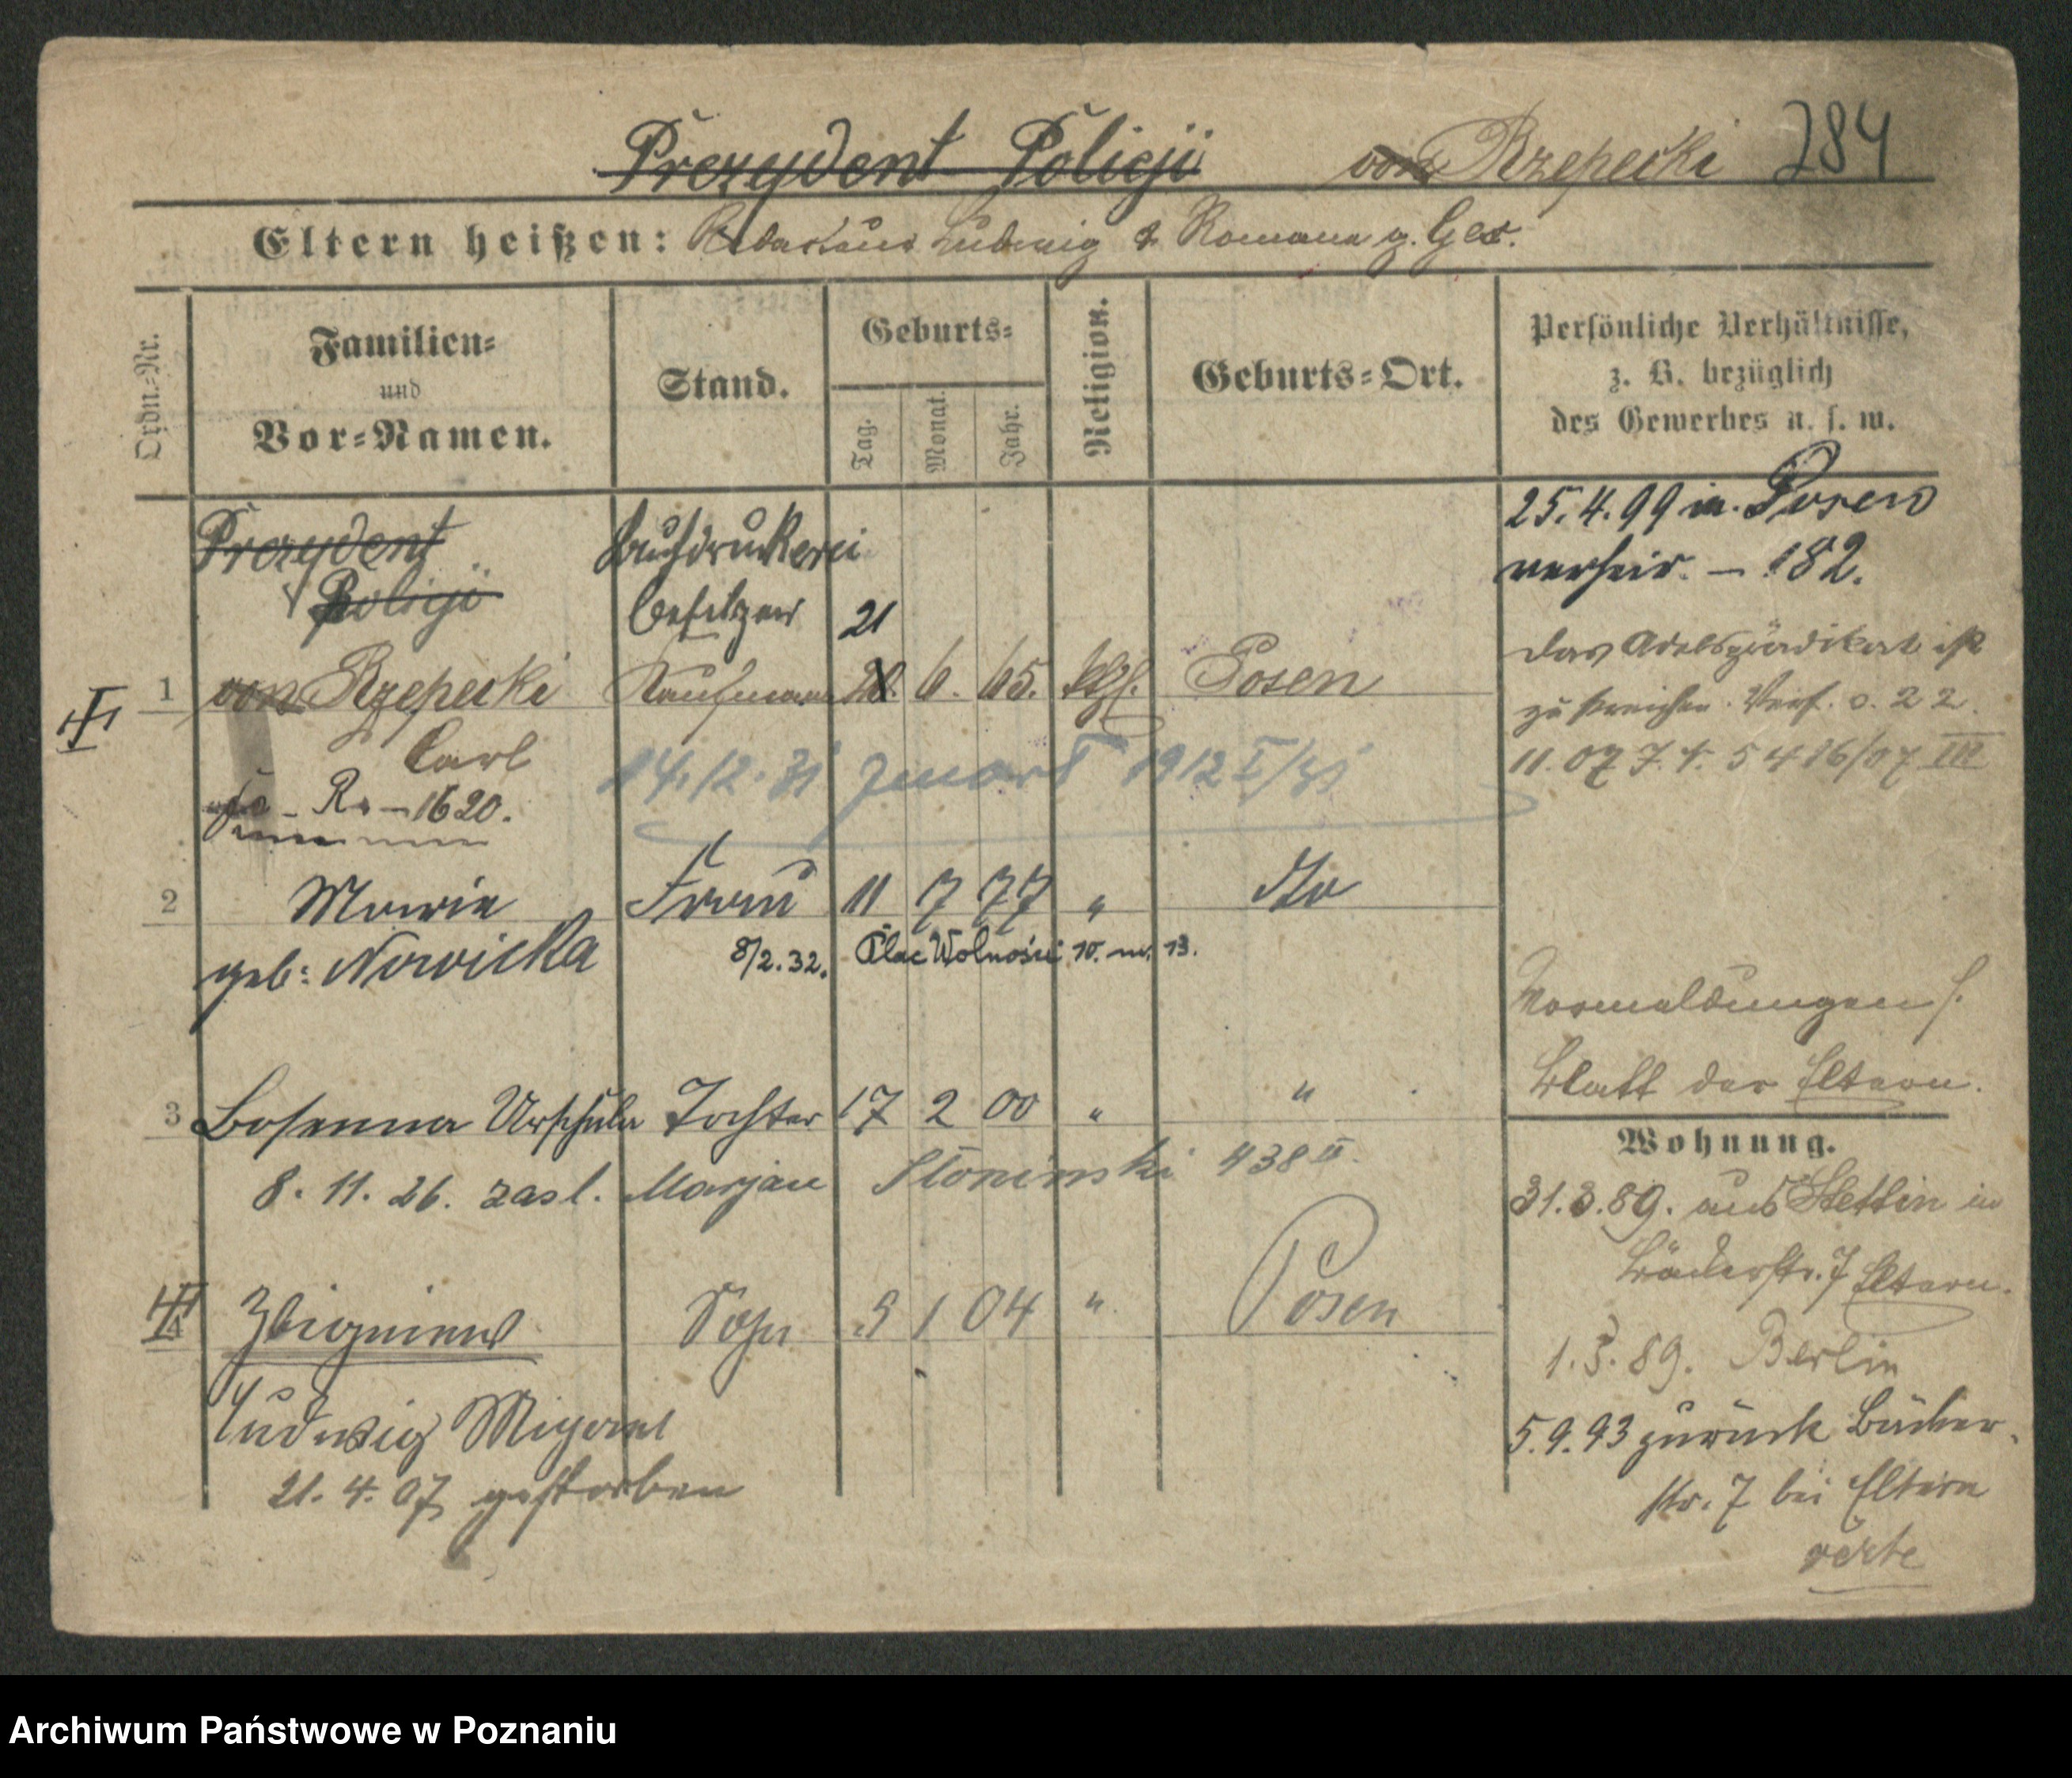 Prezydent Policji von Rzepecki 284
Eltern heißen: Redakteur Ludwig & Romana g. Gex.
Ordn.-Nr.
Familien-
und
Vor-Namen.
Stand.
Geburts-
Tag.
Monat.
Jahr.
Religion.
Geburts-Ort.
Persönliche Verhältnisse,
z. B. bezüglich
des Gewerbes u. s. w.
Prezydent
Policji
Buchdruckerei
besitzer
21
1 von Rzepecki Kaufmann 6. 65. kth. Posen
Carl
Ra - 1620.
14.12.31 1912
2 Maria Frau 11 7 77 " dto
geb: Nowicka 8/2.32. Plac Wolności 10. m. 13.
3 Bosenna Urschula Tochter 17 2 00 " "
8. 11. 26. zasl. Marjan Słoninski 438 II.
4 Zbigniew Sohn 9 1 04 " Posen
Ludwig
21. 4. 07 gestorben
25.4.99 in Posen
verheir. – 182.
das Adelsprädikat ist
zu streichen. Verf. v. 22.
11.07 J.N. 5416/07 III
Vormeldungen s.
Blatt der Eltern.
Wohnung.
31.3.89. aus Stettin in
Bäckerstr. 7 Eltern.
1.5.89. Berlin
5.9.93 zurück Bäcker-
str. 7 bei Eltern
verte
Archiwum Państwowe w Poznaniu